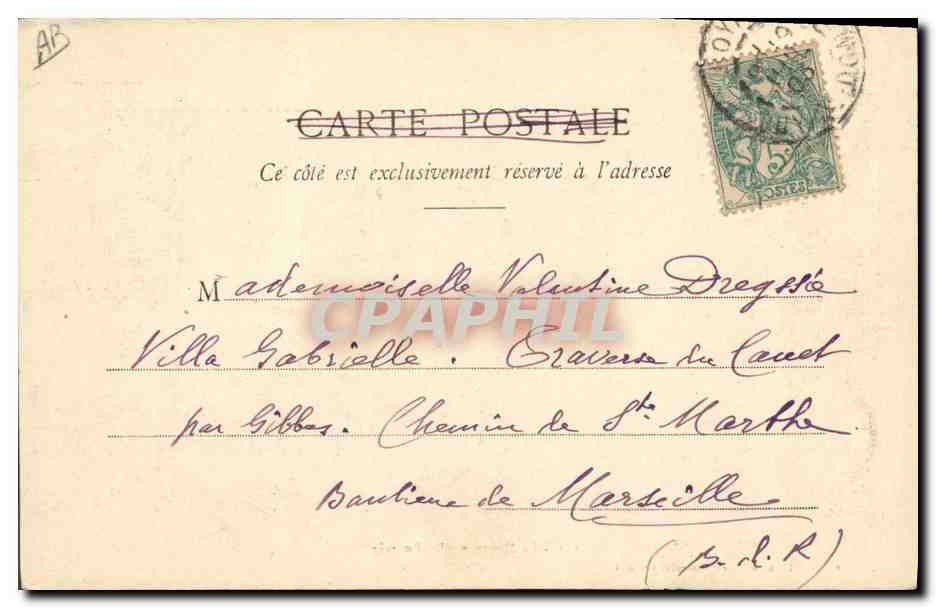 AB
CARTE POSTALE
Ce côté est exclusivement réservé à l'adresse
5c
POSTES
Mademoiselle Valentine Dregssie
CPAPHIL
Villa Gabrielle. Traverse du Canet
par Gibbes. Chemin de Ste Marthe
Banlieue de Marseille
(B. d. R)